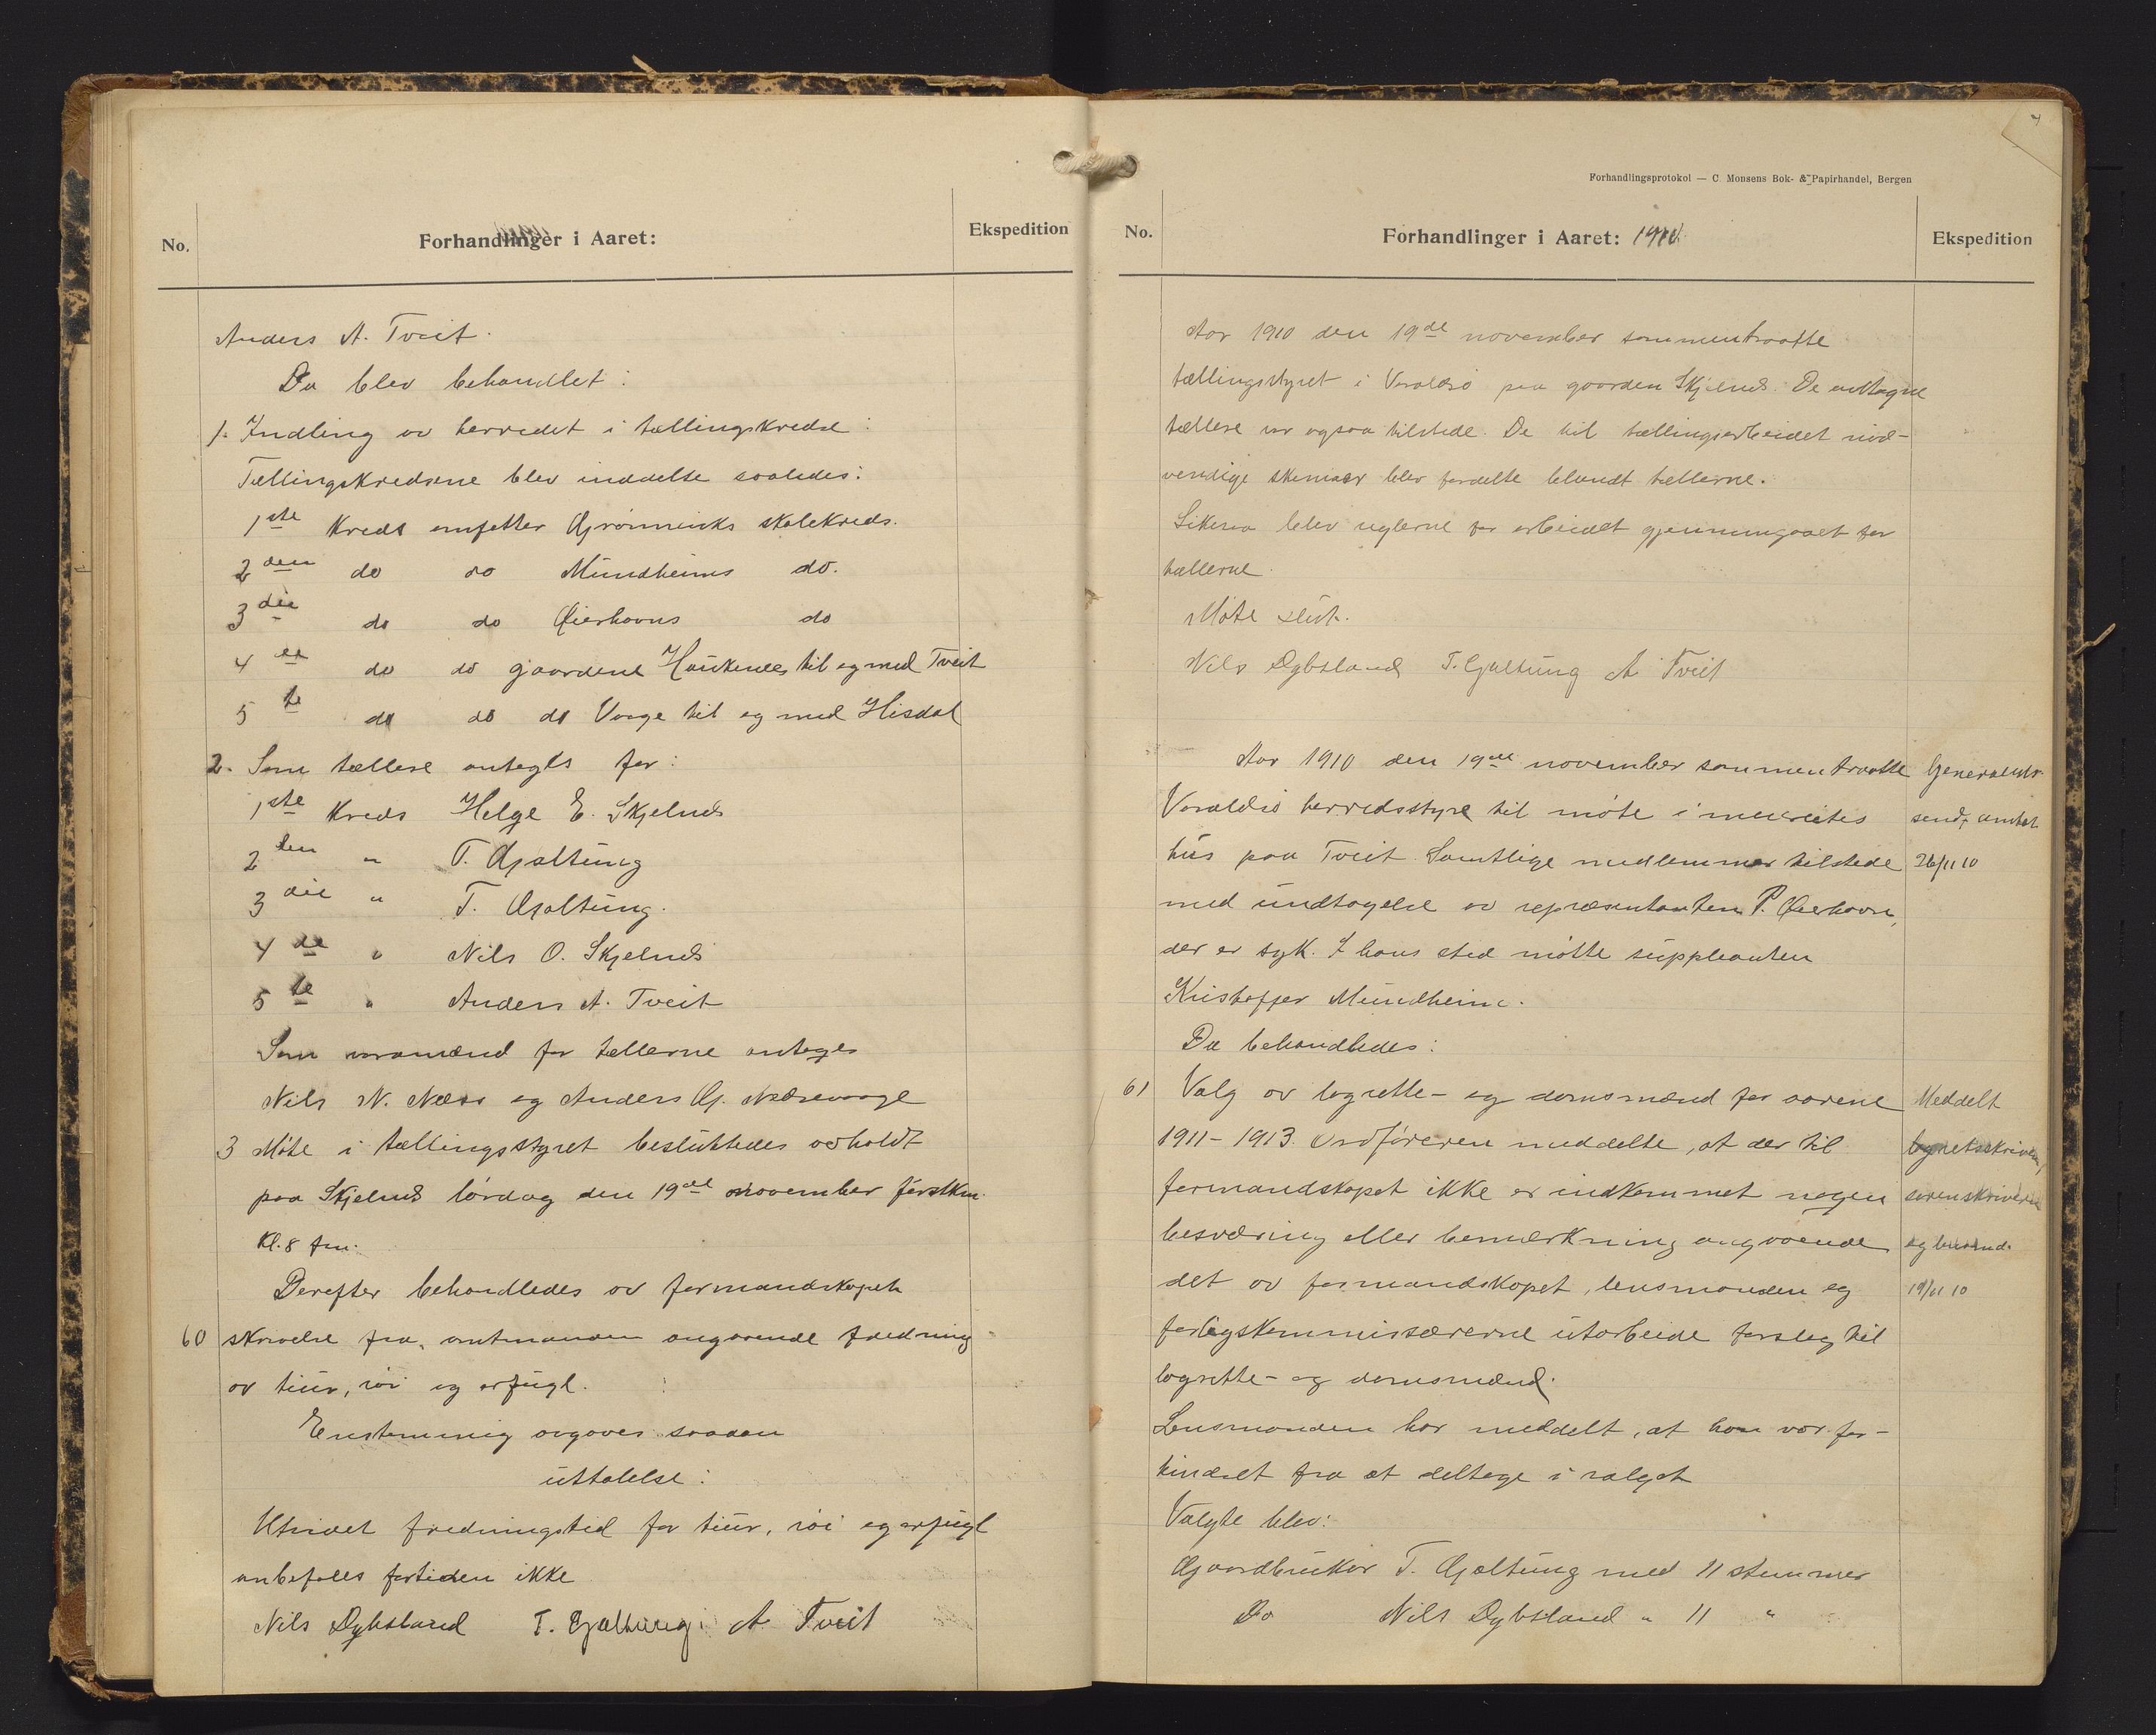 No.
Forhandlinger i Aaret:
Ekspedition
Anders A. Tveit.
Da blev behandlet:
1. Indling av herredet i tællingskredse:
Tællingskredsene blev inddelte saaledes:
1ste Kreds omfatter Gjrønneviks skolekreds.
2den do do Mundheims do.
3die do do Øierhavns do
4de do do gaardene Haukenes til og med Tveit
5te do do do Vaage til og med Hisdal
2. Som tællere antages for:
1ste Kreds Helge E. Skjelnes
2den " T. Gjaltung
3die " T. Gjaltung.
4de " Nils O. Skjelnes
5te " Anders A. Tveit
Som varamænd for tællerne antages
Nils N. Næss og Anders G. Nedrevaage
3 Møte i tællingsstyret besluttedes avholdt
paa Skjelnes lørdag den 19de november førstkm.
Kl. 8 fm.
Derefter behandledes av formandskapet
60 skrivelse fra amtmanden angaaende fredning
av tiur, røi og orfugl.
Enstemmig avgaves saadan
uttalelse:
Utvidet fredningstid for tiur, røi og orfugl
anbefales fortiden ikke
Nils Dybsland T. Gjaltung A. Tveit
4
Forhandlingsprotokol — C. Monsens Bok- & Papirhandel, Bergen
No.
Forhandlinger i Aaret: 1910.
Ekspedition
Aar 1910 den 19de november sammentraatte
tællingsstyret i Varaldsø paa gaarden Skjelnes. De anttagne
tællere var ogsaa tilstede. De til tællingsarbeidet nød-
vendige skemaer blev fordelte blandt tællerne.
Likesaa blev reglerne for arbeidet gjennemgaaet for
tællerne.
Møte slut.
Nils Dybsland T. Gjaltung A Tveit
Aar 1910 den 19de november sammentraatte
Varaldsø herredsstyre til møte i meieriets
hus paa Tveit. Samtlige medlemmer tilstede
med undtagelse av repræsentanten P. Øierhavn,
der er syk. I hans sted møtte suppleanten
Kristoffer Mundheim.
Da behandledes:
61 Valg av lagrette- og domsmænd for aarene
1911-1913. Ordføreren meddelte, at der til
formandskapet ikke er indkommet nogen
besværing eller bemærkning angaaende
det av formandskapet, lensmanden og
forligskommissærerne utarbeide forslag til
lagrette- og domsmænd.
Lensmanden har meddelt, at han var for-
hindret fra at deltage i valget
Valgte blev:
Gaardbruker T. Gjaltung med 11 stemmer
Do Nils Dybsland " 11 "
send. amtet
26/11 10
Meddelt
lagretsskriveren,
sorenskriveren
og
19/11 10